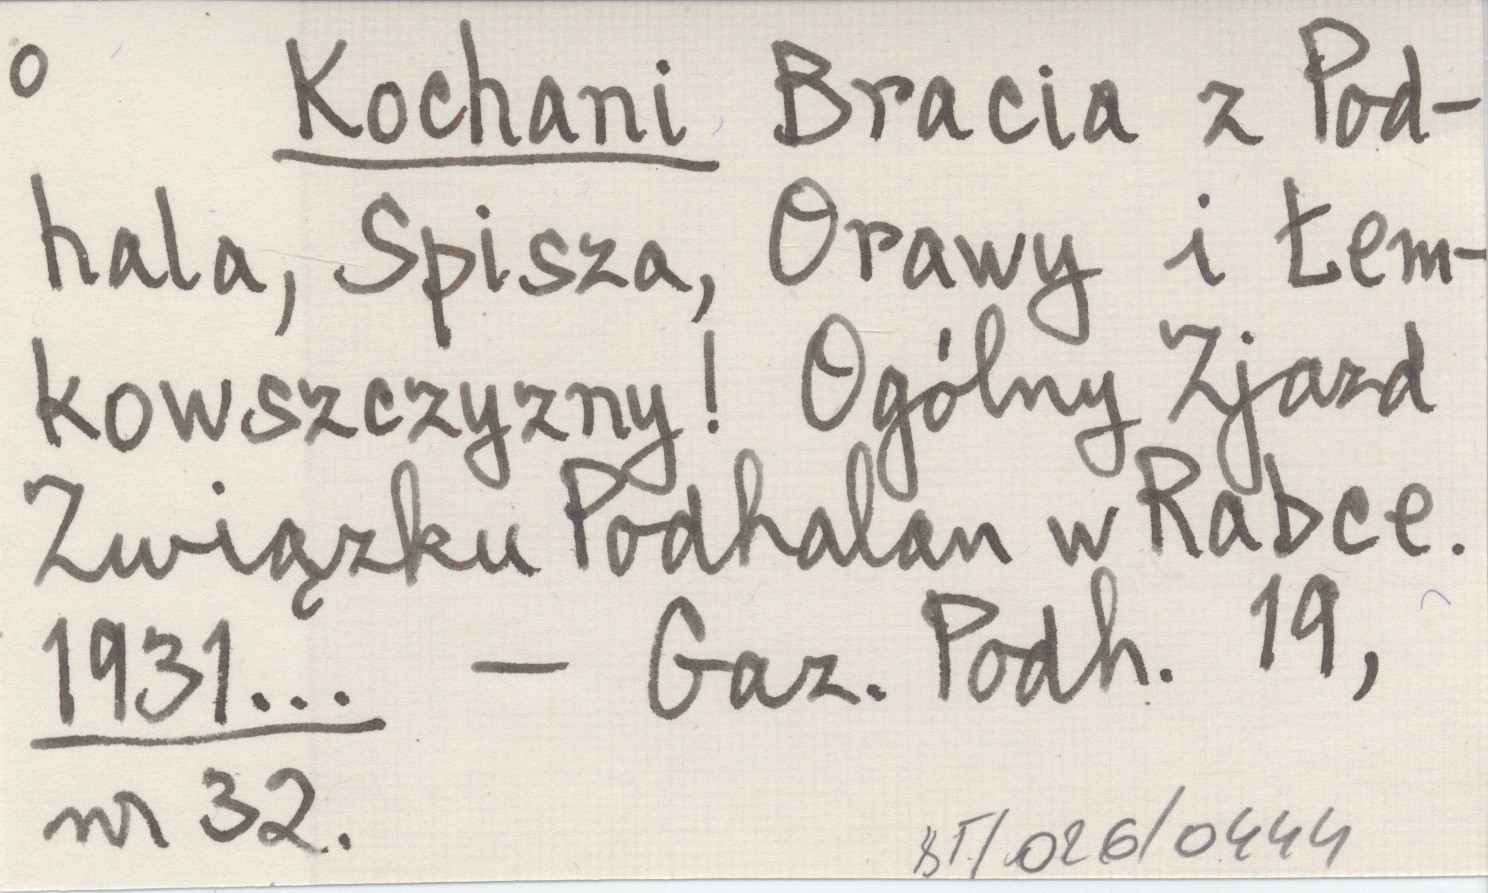 o Kochani Bracia z Pod-
hala, Spisza, Orawy i Łem-
kowszczyzny! Ogólny Zjazd
Związku Podhalan w Rabce.
1931... — Gaz. Podh. 19,
nr 32.
BT/026/0444